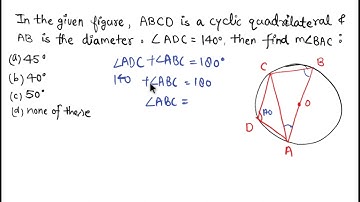 In the given figure, ABCD is a cyclic quadrilateral &
AB is the diameter. ∠ADC = 140°, then find m∠BAC :
(a) 45°
(b) 40°
(c) 50°
(d) none of these
∠ADC + ∠ABC = 180°
140 + ∠ABC = 180
∠ABC =
C
B
O
D
140
A